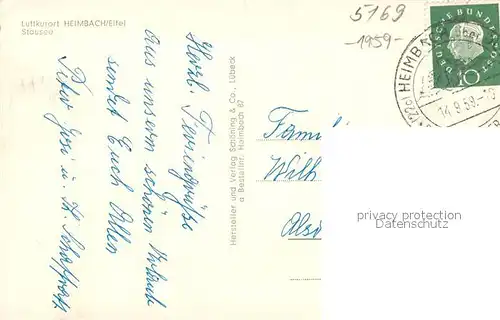 Luftkurort HEIMBACH/Eifel
Stausee
5169
-1959-
DEUTSCHE BUNDESPOST
10
HEIMBACH
14.9.59.-19
Herzl. Feriengrüße
aus unserem schönen Urlaub
sendet Euch Allen
Peter, Josi u. H.
Hersteller und Verlag Schöning & Co., Lübeck
a Bestellnr. Heimbach 67
Famil
Wilh
Alsd
privacy protection
Datenschutz